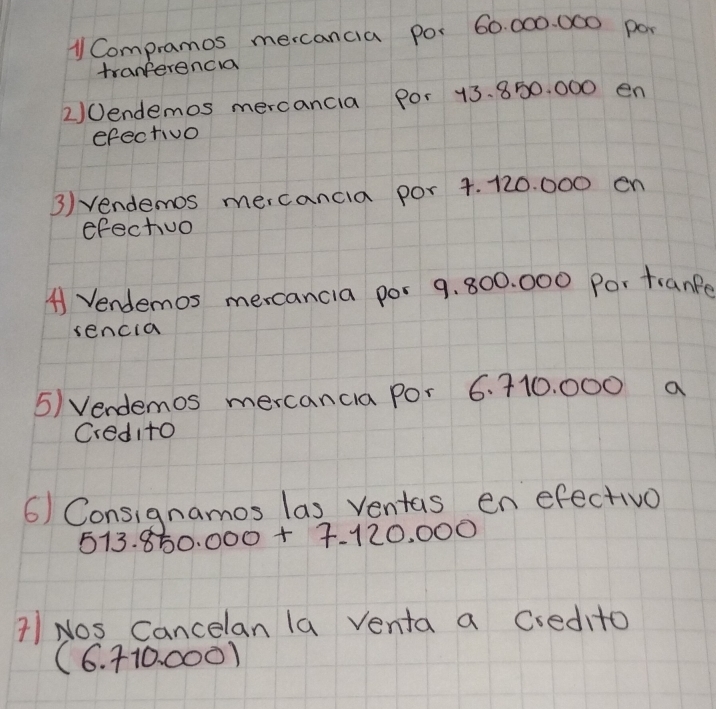 1) Compramos mercancia por 60.000.000 por
tranferencia
2) Vendemos mercancia por 13.850.000 en
efectivo
3) vendemos mercancia por 7.120.000 en
efectivo
4) Vendemos mercancia por 9.800.000 por tranfe
rencia
5) Vendemos mercancia por 6.710.000 a
Credito
6) Consignamos las ventas en efectivo
$13.850.000 + 7.120.000
7) Nos cancelan la venta a credito
(6.710.000)